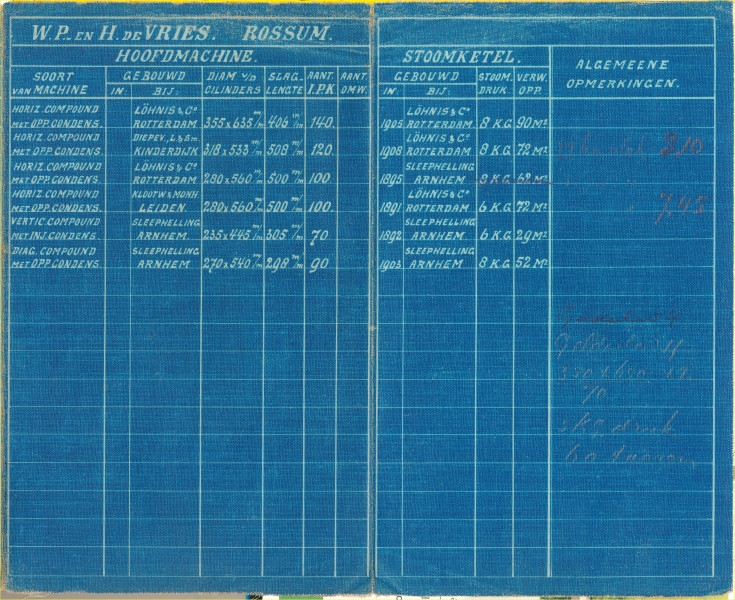 W.P. EN H. DE VRIES. ROSSUM.
HOOFDMACHINE. STOOMKETEL. ALGEMEENE OPMERKINGEN.
SOORT VAN MACHINE GEBOUWD IN: BIJ: DIAM V/D CILINDERS SLAG-LENGTE AANT. I.P.K AANT. OMW. GEBOUWD IN: BIJ: STOOM. DRUK. VERW. OPP.
HORIZ. COMPOUND LÖHNIS & Co LÖHNIS & Co
MET OPP. CONDENS. ROTTERDAM 355 x 635 m/m 406 m/m 140. 1905 ROTTERDAM 8 K.G. 90 M2
HORIZ. COMPOUND DIEPEV., L. & S.M. LÖHNIS & Co
MET OPP. CONDENS. KINDERDIJK 318 x 533 m/m 508 m/m 120. 1908 ROTTERDAM 8 K.G. 72 M2 2,10
HORIZ. COMPOUND LÖHNIS & Co SLEEPHELLING
MET OPP. CONDENS. ROTTERDAM 280 x 560 m/m 500 m/m 100. 1895 ARNHEM 8 K.G. 62 M2
HORIZ. COMPOUND KLOOTW & MONH LÖHNIS & Co
MET OPP. CONDENS. LEIDEN. 280 x 560 m/m 500 m/m 100. 1891 ROTTERDAM 6 K.G. 72 M2 7,45
VERTIC. COMPOUND SLEEPHELLING SLEEPHELLING
MET INJ. CONDENS. ARNHEM. 235 x 445 m/m 305 m/m 70 1892 ARNHEM. 6 K.G. 29 M2
DIAG. COMPOUND SLEEPHELLING SLEEPHELLING
MET OPP. CONDENS. ARNHEM 270 x 540 m/m 298 m/m 90 1903 ARNHEM 8 K.G. 52 M2
70